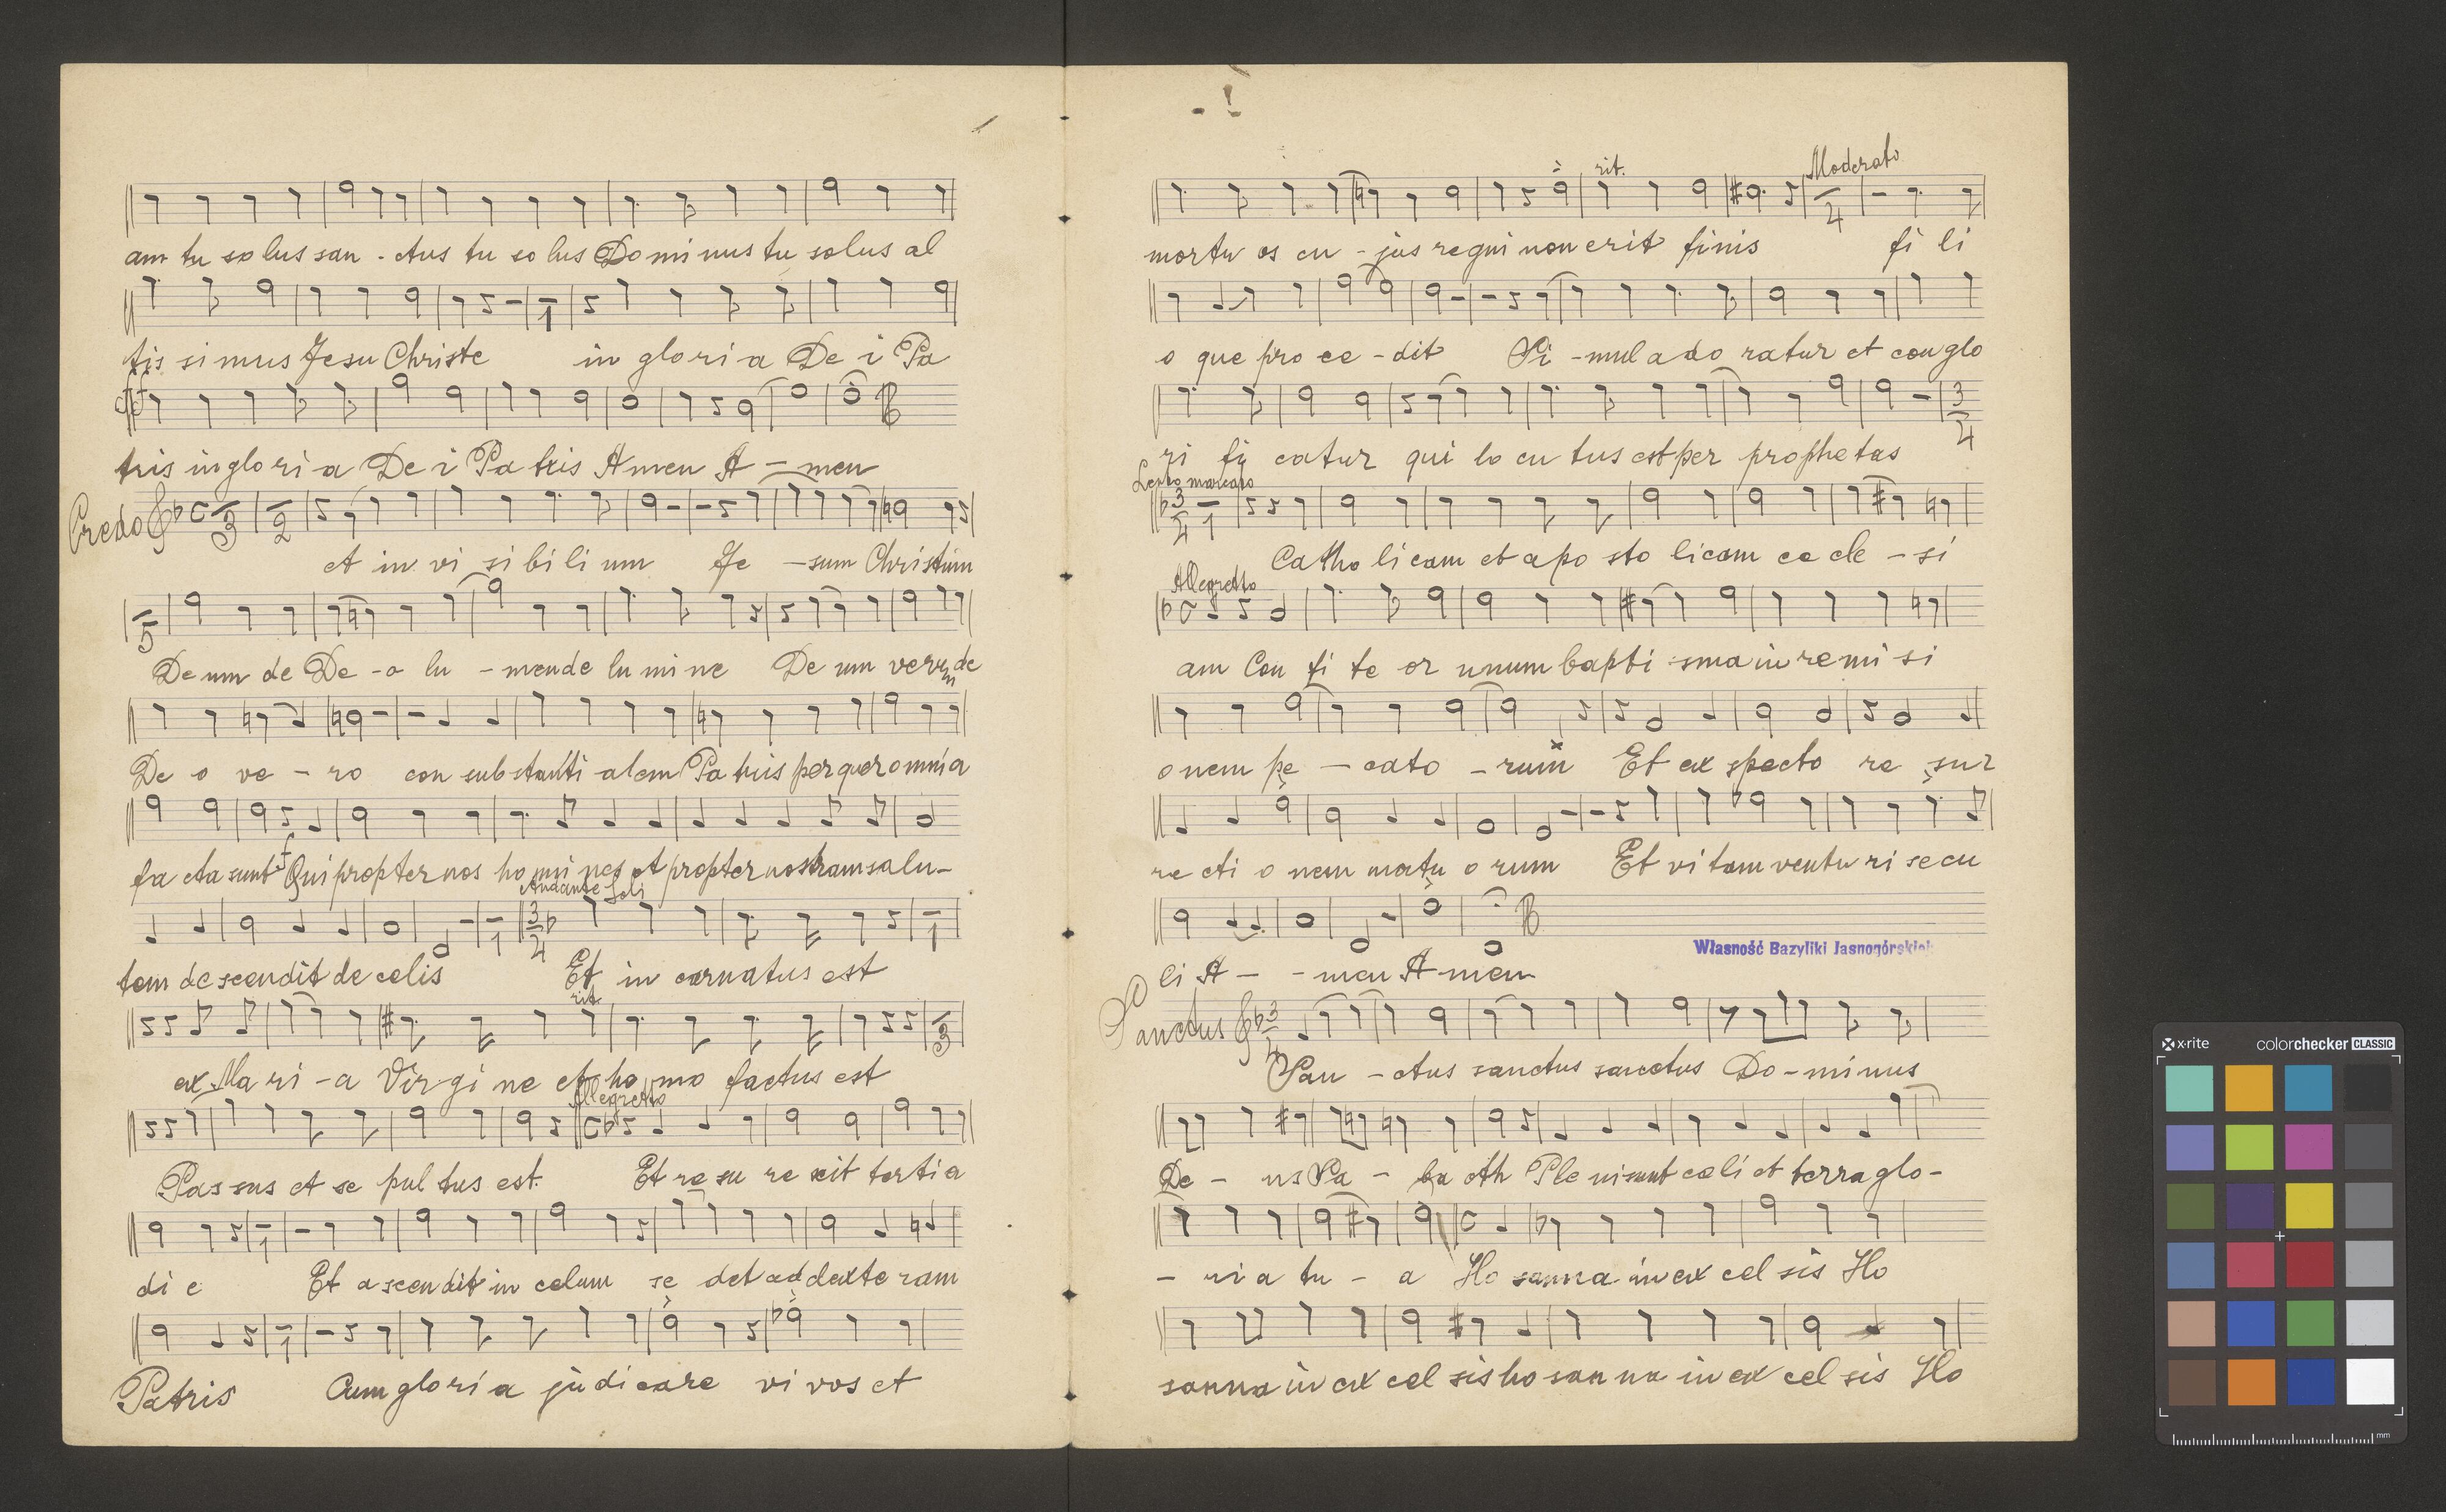 am tu so lus san - ctus tu so lus Do mi nus tu solus al
tis si mus Jesu Christe in glo ri a De i Pa
tris in glo ri a De i Pa tris Amen A - men
Credo
3 2
et in vi si bi li um Je - sum Christum
5
De um de De - o lu - men de lu mi ne De um verum de
De o ve - ro con substanti - alem Pa tris per quer omnia
f
fa cta sunt Qui propter nos ho mi nes et propter nostram salu -
Andante Soli
1 3/4 1
tem de scendit de celis Et in carnatus est
rit.
3
ex Ma ri - a Virgi ne et ho mo factus est
Allegretto
Pas sus et se pul tus est. Et re su re xit tertia
1
di e Et a scen dit in celum se det ad dexte ram
1
Patris Cum glori a judi care vi vos et
rit. Moderato
4
mortu os cu - jus regni non erit finis fi li
o que pro ce - dit Si - mul ado ratur et con glo
3/4
ri fi catur qui lo cu tus est per prophe tas
Lento marcato
3/4 1
Catho licam et apo sto licam ec cle - si
Allegretto
am Con fi te or unum bapti - sma in remi si
o nem pe - cato - rum Et ex specto re sur
re cti o nem mortu o rum Et vi tam ventu ri se cu
Własność Bazyliki Jasnogórskiej
li A - - men A - men
Sanctus 3/4
San - ctus sanctus sanctus Do - minus
De - us Sa - ba oth Ple ni sunt celi et terra glo -
- ri a tu - a Ho sanna in ex cel sis Ho
sanna in ex cel sis ho san na in ex cel sis Ho
x-rite colorchecker CLASSIC
mm